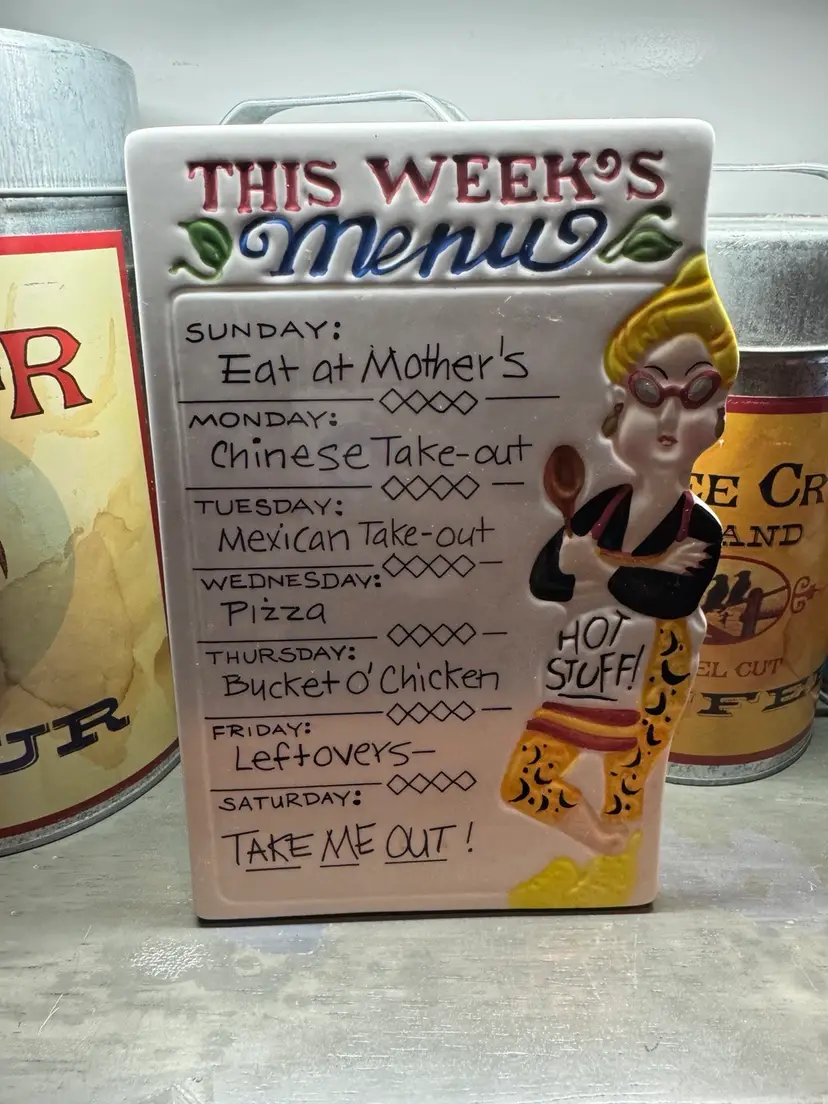 THIS WEEK'S
Menu
SUNDAY:
Eat at Mother's
MONDAY:
Chinese Take-out
TUESDAY:
Mexican Take-out
WEDNESDAY:
Pizza
THURSDAY:
Bucket O' Chicken
FRIDAY:
Leftovers—
SATURDAY:
TAKE ME OUT!
HOT
STUFF!
AND